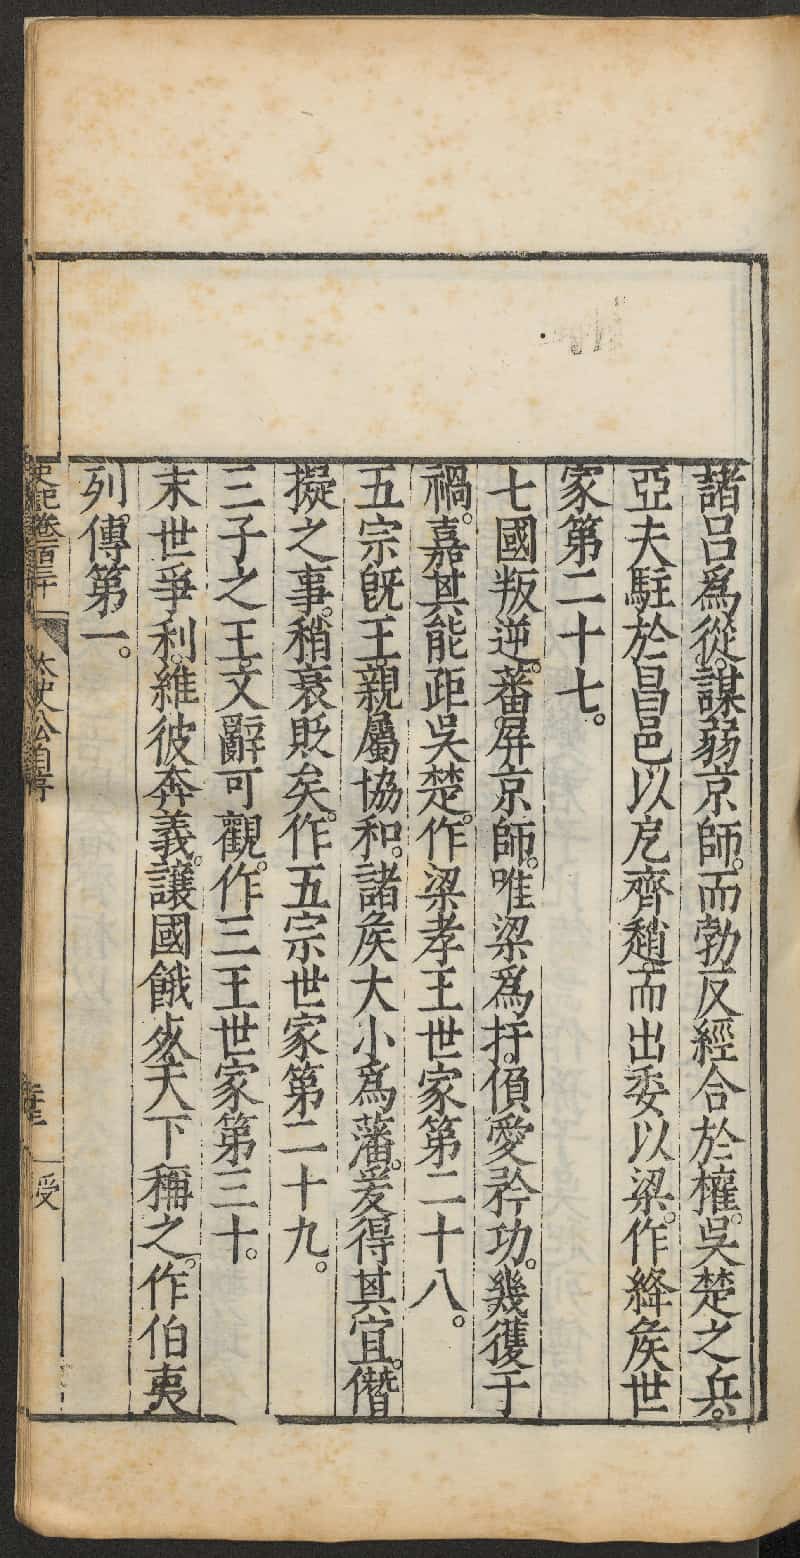 諸呂爲從。謀弱京師。而勃反經合於權。吳楚之兵。
亞夫駐於昌邑以戹齊趙而出委以梁。作絳矦世
家第二十七。
七國叛逆。蕃屏京師。唯梁爲扞。偩愛矜功。幾獲于
禍。嘉其能距吳楚。作梁孝王世家第二十八。
五宗旣王親屬協和。諸矦大小爲藩。爰得其宜。僭
擬之事。稍衰貶矣。作五宗世家第二十九。
三子之王。文辭可觀。作三王世家第三十。
末世爭利。維彼奔義。讓國餓死天下稱之。作伯夷
列傳第一。
史記卷一百三十 太史公自序 受